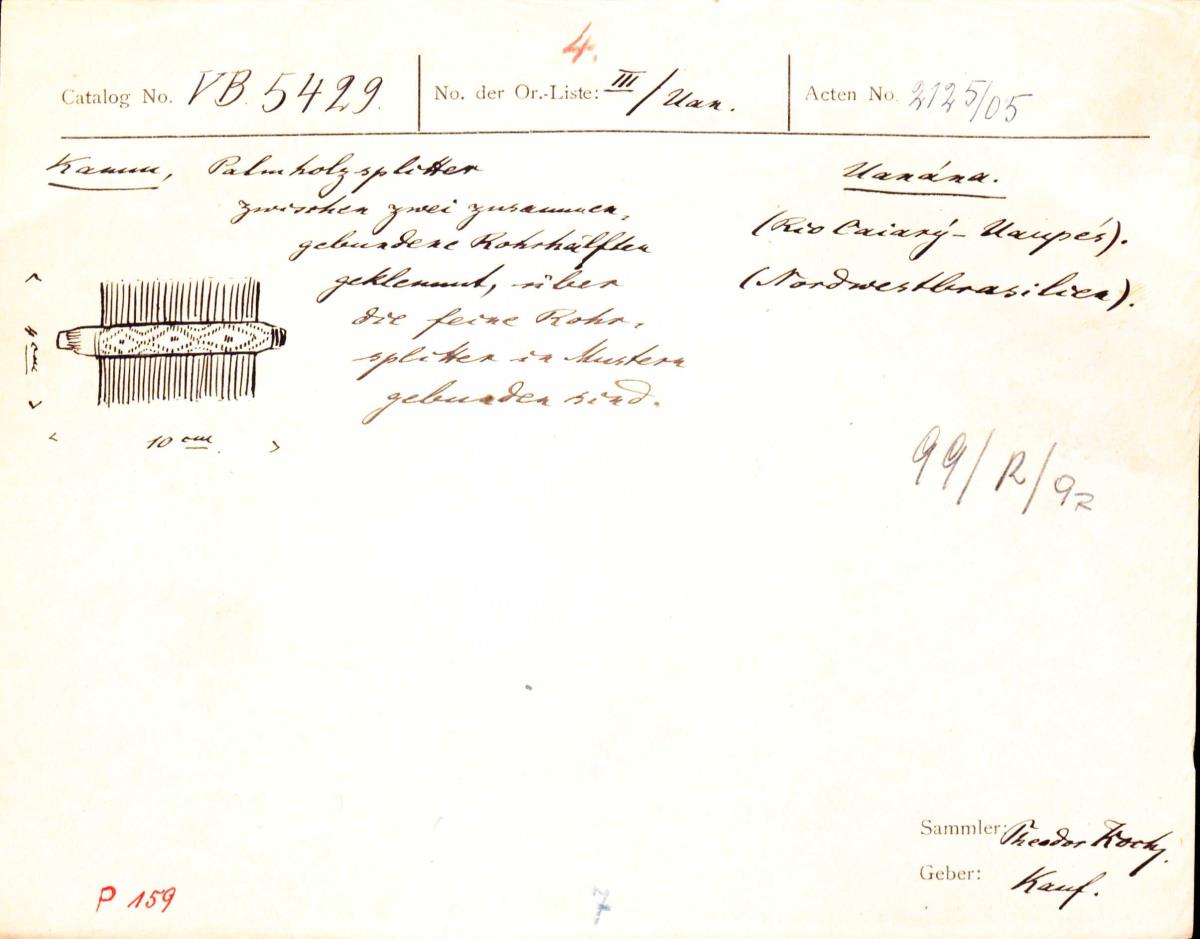 4.
Catalog No. VB. 5429. No. der Or.-Liste: III/Uan. Acten No. 2125/05
Kamm, Palmholzsplitter
zwischen zwei zusammen-
gebundene Rohrhälften
geklemmt, über
die feine Rohr-
splitter in Mustern
gebunden sind.
4 cm
10 cm.
Uanána.
(Rio Caiarý-Uaupés).
(Nordwestbrasilien).
99/R/92
Sammler: Theodor Koch.
Geber: Kauf.
P 159
7